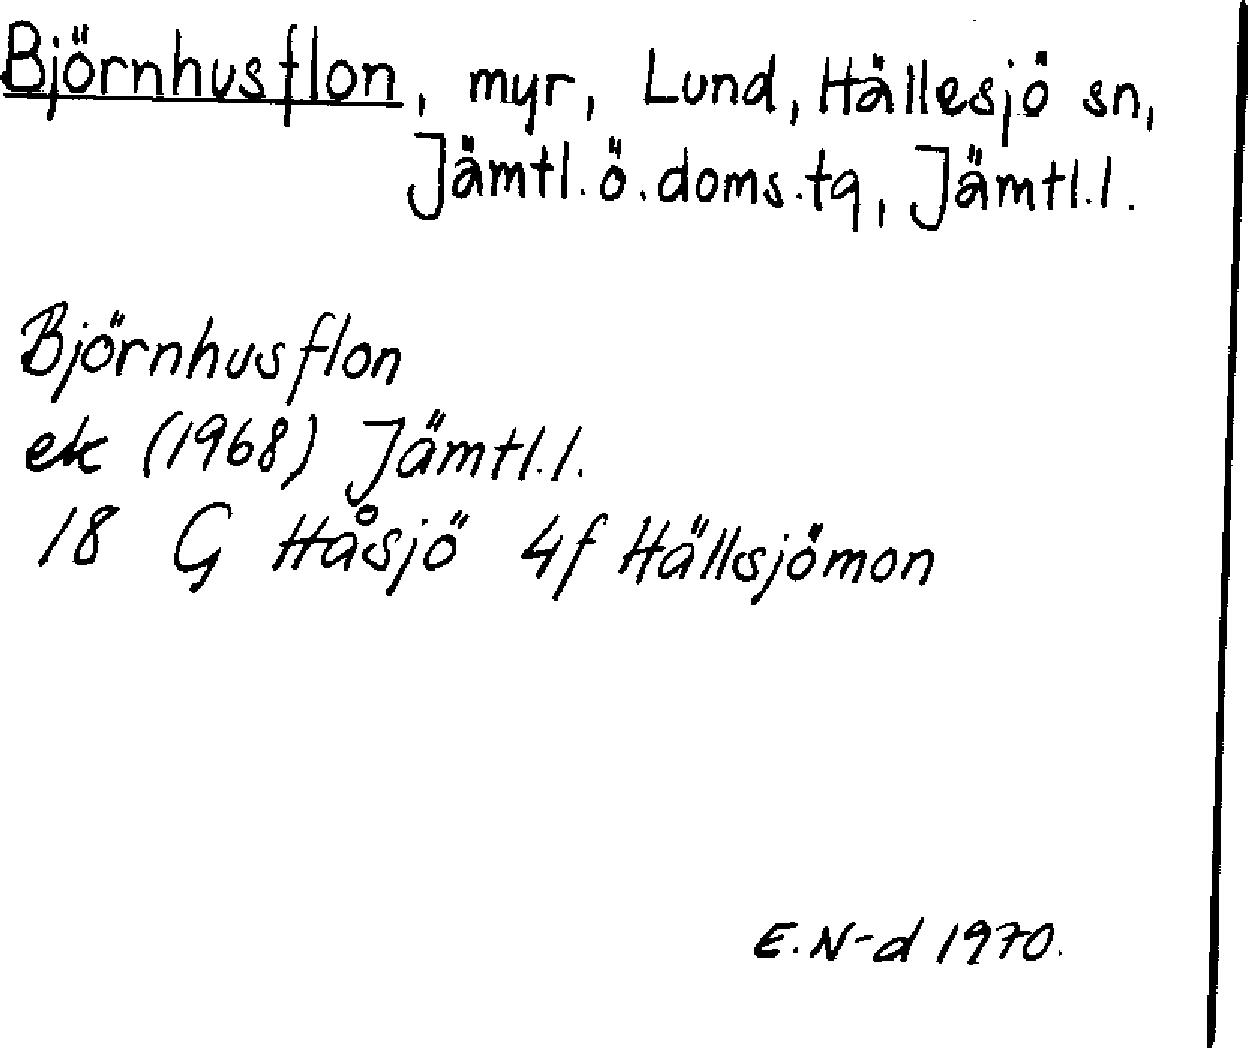 Björnhusflon, myr, Lund, Hällesjö sn,
Jämtl. ö. doms.tg, Jämtl.l.
Björnhusflon
ek (1968) Jämtl.l.
18 G Håsjö 4f Hällsjömon
E. N-d 1970.